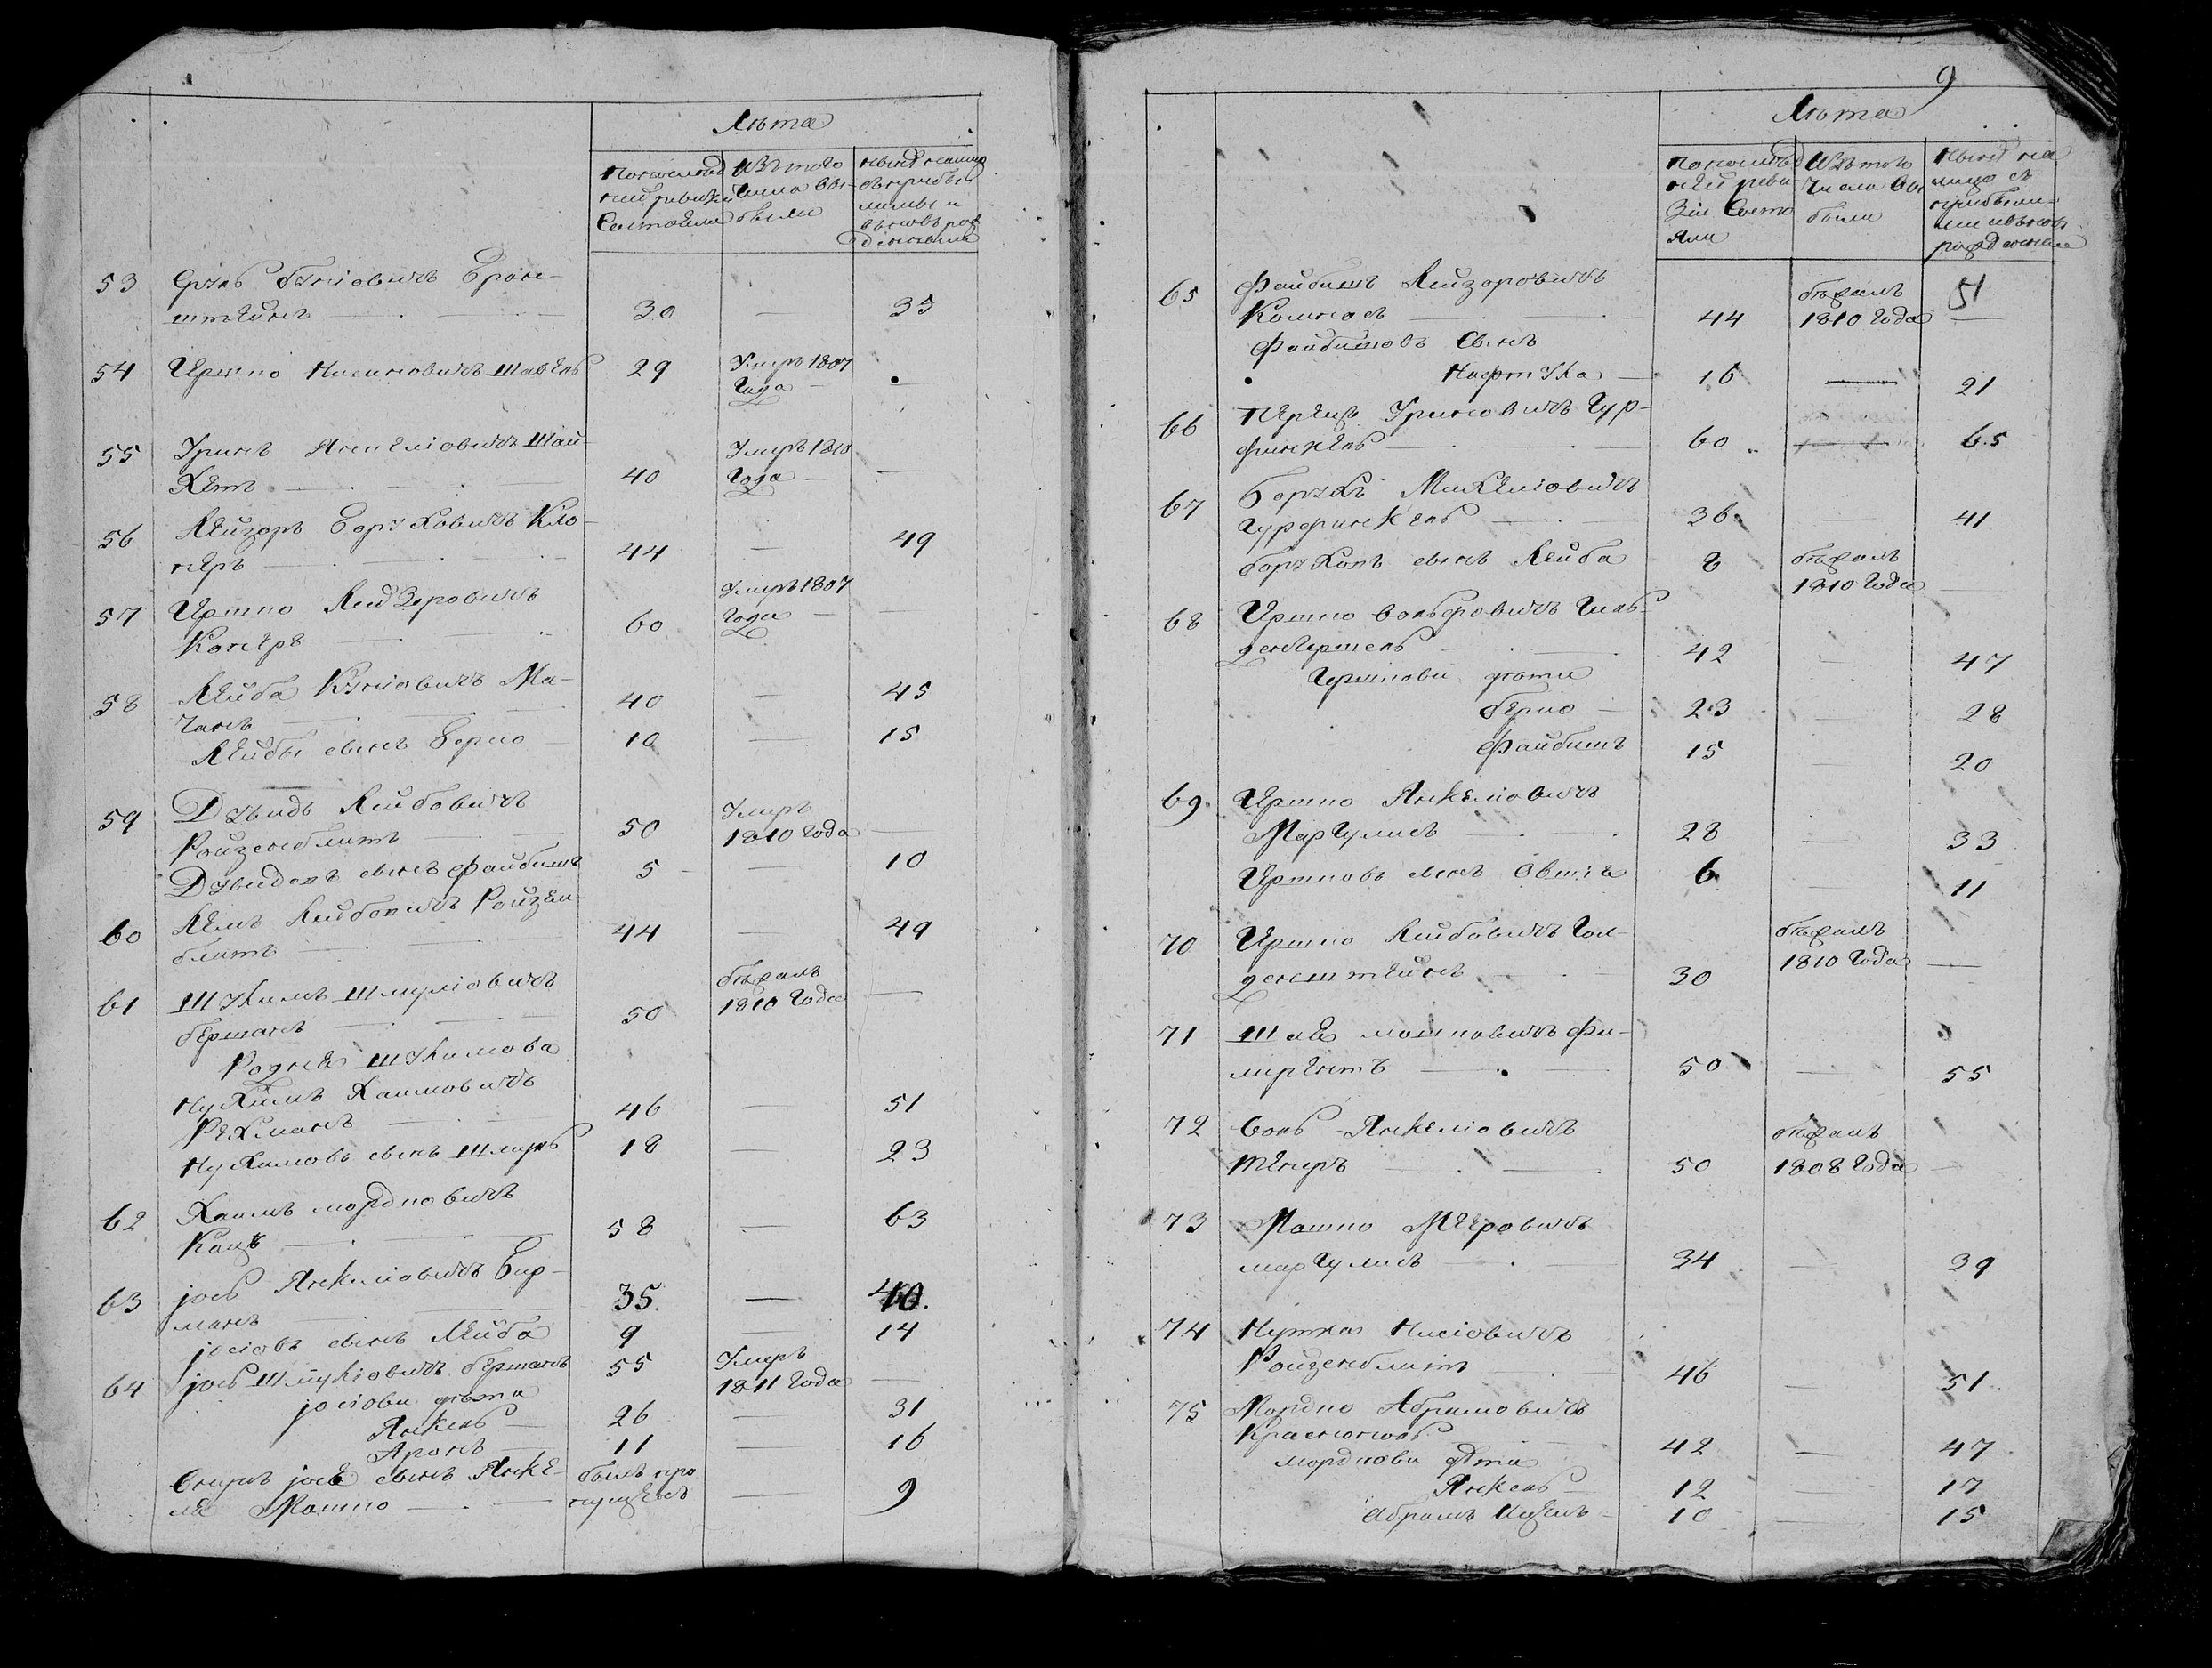 Лѣта
По последней ревизии Состояли
Изъ того числа выбыли
Ныне на лицо съ прибылыми и вновь рожденными
53 Сруль Бениовичъ Брон-
штейнъ 30 — 35
54 Иршко Нисиновичъ Шавель 29 Умеръ 1807
Года —
55 Уринъ Янкелiовичъ Шай-
Хетъ 40 Умеръ 1810
Года —
56 Лейзоръ Борух овичъ Кло-
неръ 44 — 49
57 Иршко Лейзеровичъ
Конеръ 60 Умеръ 1807
Года —
58 Лейба Ма-
чанъ 40 — 45
Лейбы сынъ Берко 10 — 15
59 Дувидъ Лейбовичъ
Ройзенблитъ 50 Умеръ
1810 Года —
Дувидовъ сынъ Файбишъ 5 — 10
60 Лемъ Лейбовичъ Ройзен-
блитъ 44 — 49
61 Шулимъ Шмулiовичъ
Бершанъ 50 бѣжалъ
1810 Года —
Шулимова
Нухимъ Хаимовичъ
Рехманъ 46 — 51
Нухимовъ сынъ Шмуль 18 — 23
62 Хаимъ Мордковичъ
Кацъ 58 — 63
63 Јось Янкелiовичъ Бир-
манъ 35 — 40
Јосiовъ сынъ Лейба 9 — 14
64 Јось Шмулiовичъ Бершанъ 55 Умеръ
1811 Года —
Јосiови дѣти
Янкель 26 — 31
Аронъ 11 — 16
Внукъ Јося сынъ Янке-
ля Мошко былъ про
пущенъ — 9
9
Лѣта
По последней ревизiи Состояли
Изъ того числа выбыли
Ныне на лицо съ прибылыми и вновь рожденными
65 Файбишъ Лейзоровичъ
Колкасъ 44 бѣжалъ
1810 Года — 51
Файбишовъ Сынъ
Нафтула 16 — 21
66 Перецъ Уриновичъ Гур-
финкель 60 — 65
67 Борухъ Михелiовичъ
Гурфинкель 36 — 41
Боруховъ сынъ Лейба 8 бѣжалъ
1810 Года —
68 Иршко Вольфовичъ Гиль-
денгершель 42 — 47
Иршкови дѣти
Берко 23 — 28
Файбишъ 15 — 20
69 Иршко Янкелiовичъ
Маргулисъ 28 — 33
Иршковъ сынъ Овшiя 6 — 11
70 Иршко Лейбовичъ Гол-
денштейнъ 30 бѣжалъ
1810 Года —
71 Шая Мошковичъ Фи-
лирентъ 50 — 55
72 Воль Янкелiовичъ
50 бѣжалъ
1808 Года —
73 Мошко Мееровичъ
Маргулисъ 34 — 39
74 Нутка Нисiовичъ
Ройзенблитъ 46 — 51
75 Мордко Абрамовичъ
42 — 47
Мордкови дѣти
Янкель 12 — 17
Абрамъ Ицекъ 10 — 15